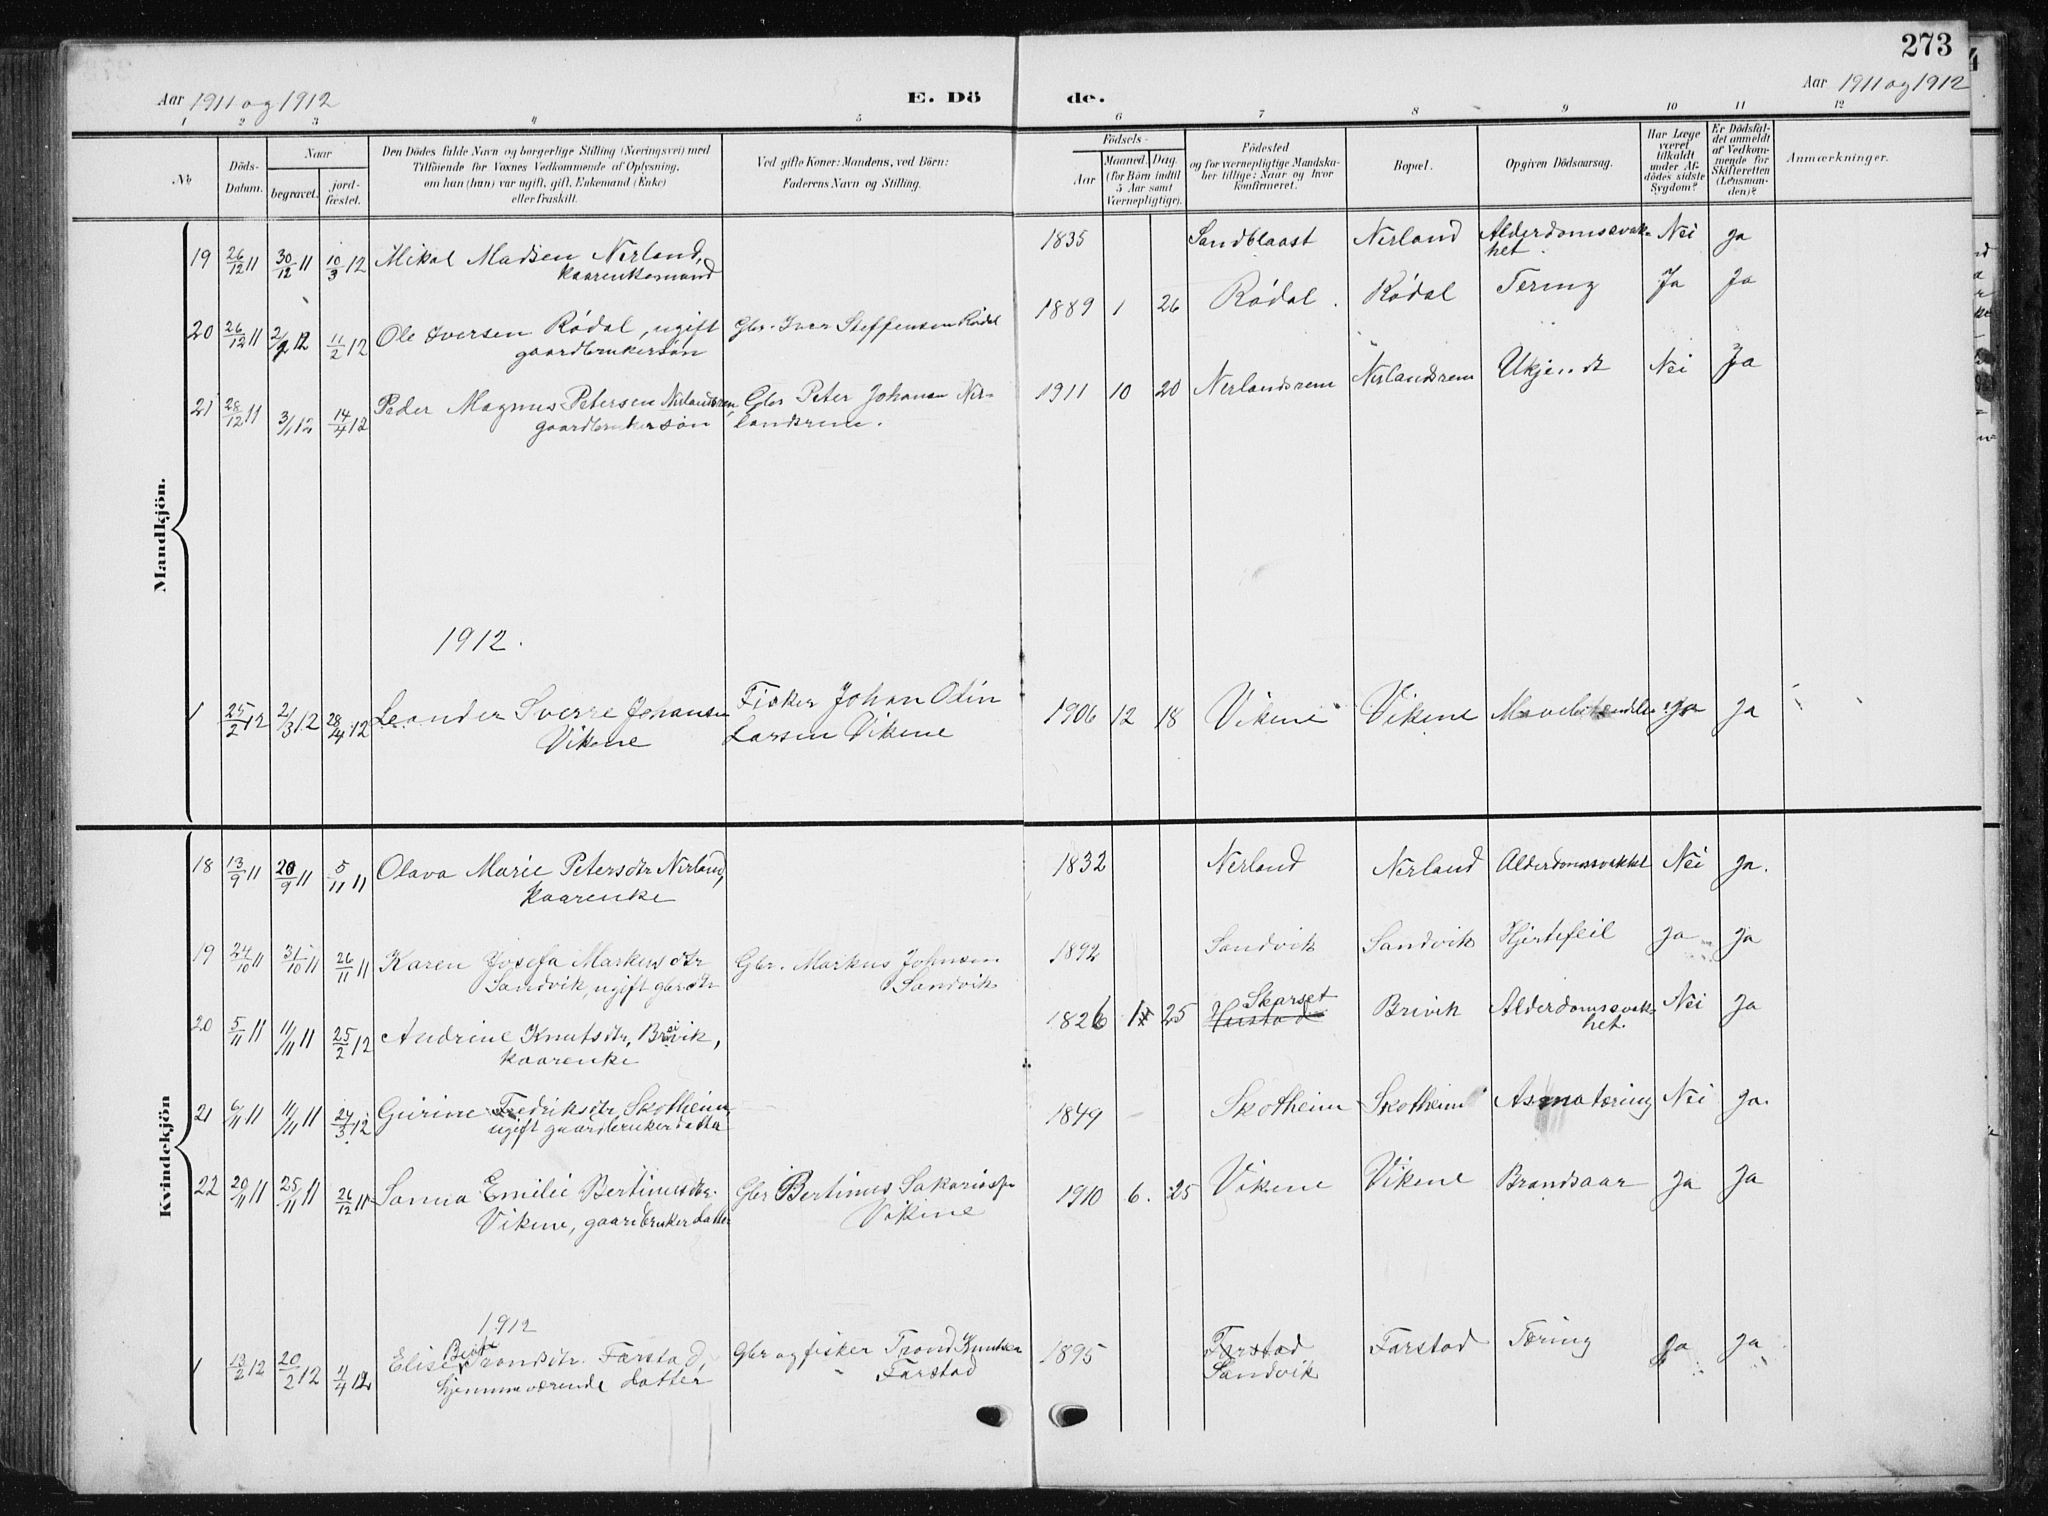 273
Aar 1911 og 1912
E. Dö
de.
Aar 1911 og 1912
1 2 3 4 5 6 7 8 9 10 11 12
No
Döds-Datum.
Naar
begravet.
jord-fæstet.
Den Dödes fulde Navn og borgerlige Stilling (Næringsvei) med
Tilföiende for Voxnes Vedkommende af Oplysning,
om han (hun) var ugift, gift, Enkemand (Enke)
eller fraskilt.
Ved gifte Koner: Mandens, ved Börn:
Faderens Navn og Stilling.
Födsels-
Aar
Maaned. Dag.
(for Börn indtil
5 Aar samt
Værnepligtige).
Födested
og for værnepligtige Mandska-
ber tillige: Naar og hvor
konfirmeret.
Bopæl.
Opgiven Dödsaarsag.
Har Læge
været
tilkaldt
under Af-
dödes sidste
Sygdom?
Er Dödsfal-
det anmeldt
af Vedkom-
mende for
Skifteretten
(Lensman-
den)?
Anmærkninger.
Mandkjön.
19 26/12 11 30/12 11 10/3 12 Mikal Madsen Nerland, 1835 Sandblaast Nerland Alderdomssvak- Nei Ja
kaarenkemand het.
20 26/12 11 2/1 12 11/2 12 Ole Iversen Rödal, ugift Gbr. Iver Steffensen Rödal 1889 1 26 Rödal. Rödal Tæring Ja Ja
gaardbrukersön
21 28/12 11 3/1 12 14/4 12 Peder Magnus Petersen Nerlandsrem, Gbr Peter Johansen Ner- 1911 10 20 Nerlandsrem Nerlandsrem Ukjendt Nei Ja
gaardbrukersön landsrem.
1912.
1 25/2 12 2/3 12 28/4 12 Leander Sverre Johansen Fisker Johan Odin 1906 12 18 Vikene Vikene Ja Ja
Vikene Larsen Vikene
Kvindekjön
18 13/9 11 20/9 11 5/11 11 Olava Marie Petersdtr Nerland, 1832 Nerland Nerland Alderdomssvakhet Nei Ja.
kaarenke
19 24/10 11 31/10 11 26/11 11 Karen Josefa Markusdtr Gbr. Markus Johnsen 1892 Sandvik Sandvik Hjertefeil Ja Ja
Sandvik, ugift gbrdtr Sandvik
20 5/11 11 11/11 11 25/2 12 Andrine Knutsdtr, Brevik, 1826 25 Skarset Brivik Alderdomssvak- Nei Ja
kaarenke Hustad het.
21 6/11 11 11/11 11 24/3 12 Gurine Fredriksdtr, Skotheim, 1849 Skotheim Skotheim Asmatæring Nei Ja.
ugift gaardbrukerdatter
22 20/11 11 25/11 11 26/12 11 Sanna Emilie Bertinusdtr. Gbr Bertinus Sakariassen 1910 6. 25 Vikene Vikene Brandsaar Ja Ja
Vikene, gaardbrukerdatter Vikene
1912
1 13/2 12 20/2 12 11/4 12 Elise Beate Trondsdtr. Farstad, Gbr og fisker Trond Knutsen 1895 Farstad Farstad Tæring Ja Ja
hjemmeværende datter Farstad Sandvik